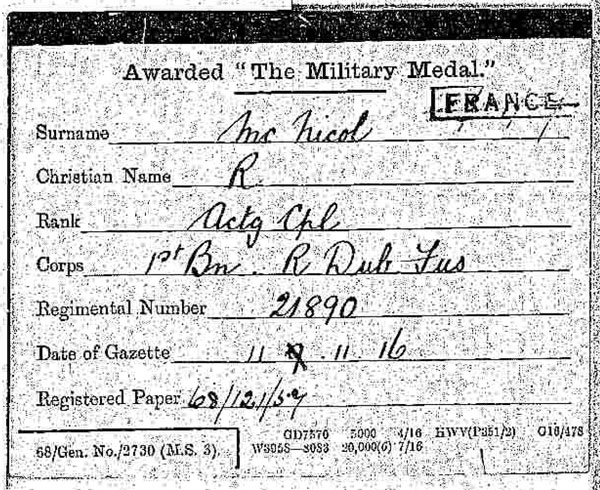 Awarded "The Military Medal."
FRANCE
Surname Mc Nicol
Christian Name R
Rank Actg Cpl
Corps 1st Bn. R Dub Fus
Regimental Number 21890
Date of Gazette 11 . 11 . 16
Registered Paper 68/121/59
68/Gen. No./2730 (M.S. 3).
GD7570 5000 4/16 HWV(P351/2) G10/478
W8958—8083 20,000(6) 7/16